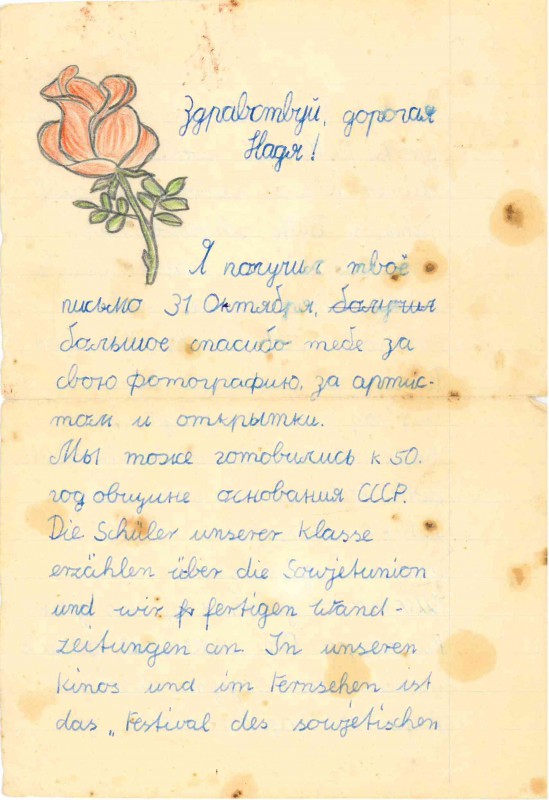 Здравствуй, дорогая
Надя!
Я получил твоё
письмо 31 Октября,
большое спасибо тебе за
свою фотографию, за артис-
там и открытки.
Мы тоже готовились к 50.
годовщине основания СССР.
Die Schüler unserer Klasse
erzählen über die Sowjetunion
und wir fertigen Wand-
zeitungen an. In unseren
Kinos und im Fernsehen ist
das „Festival des sowjetischen